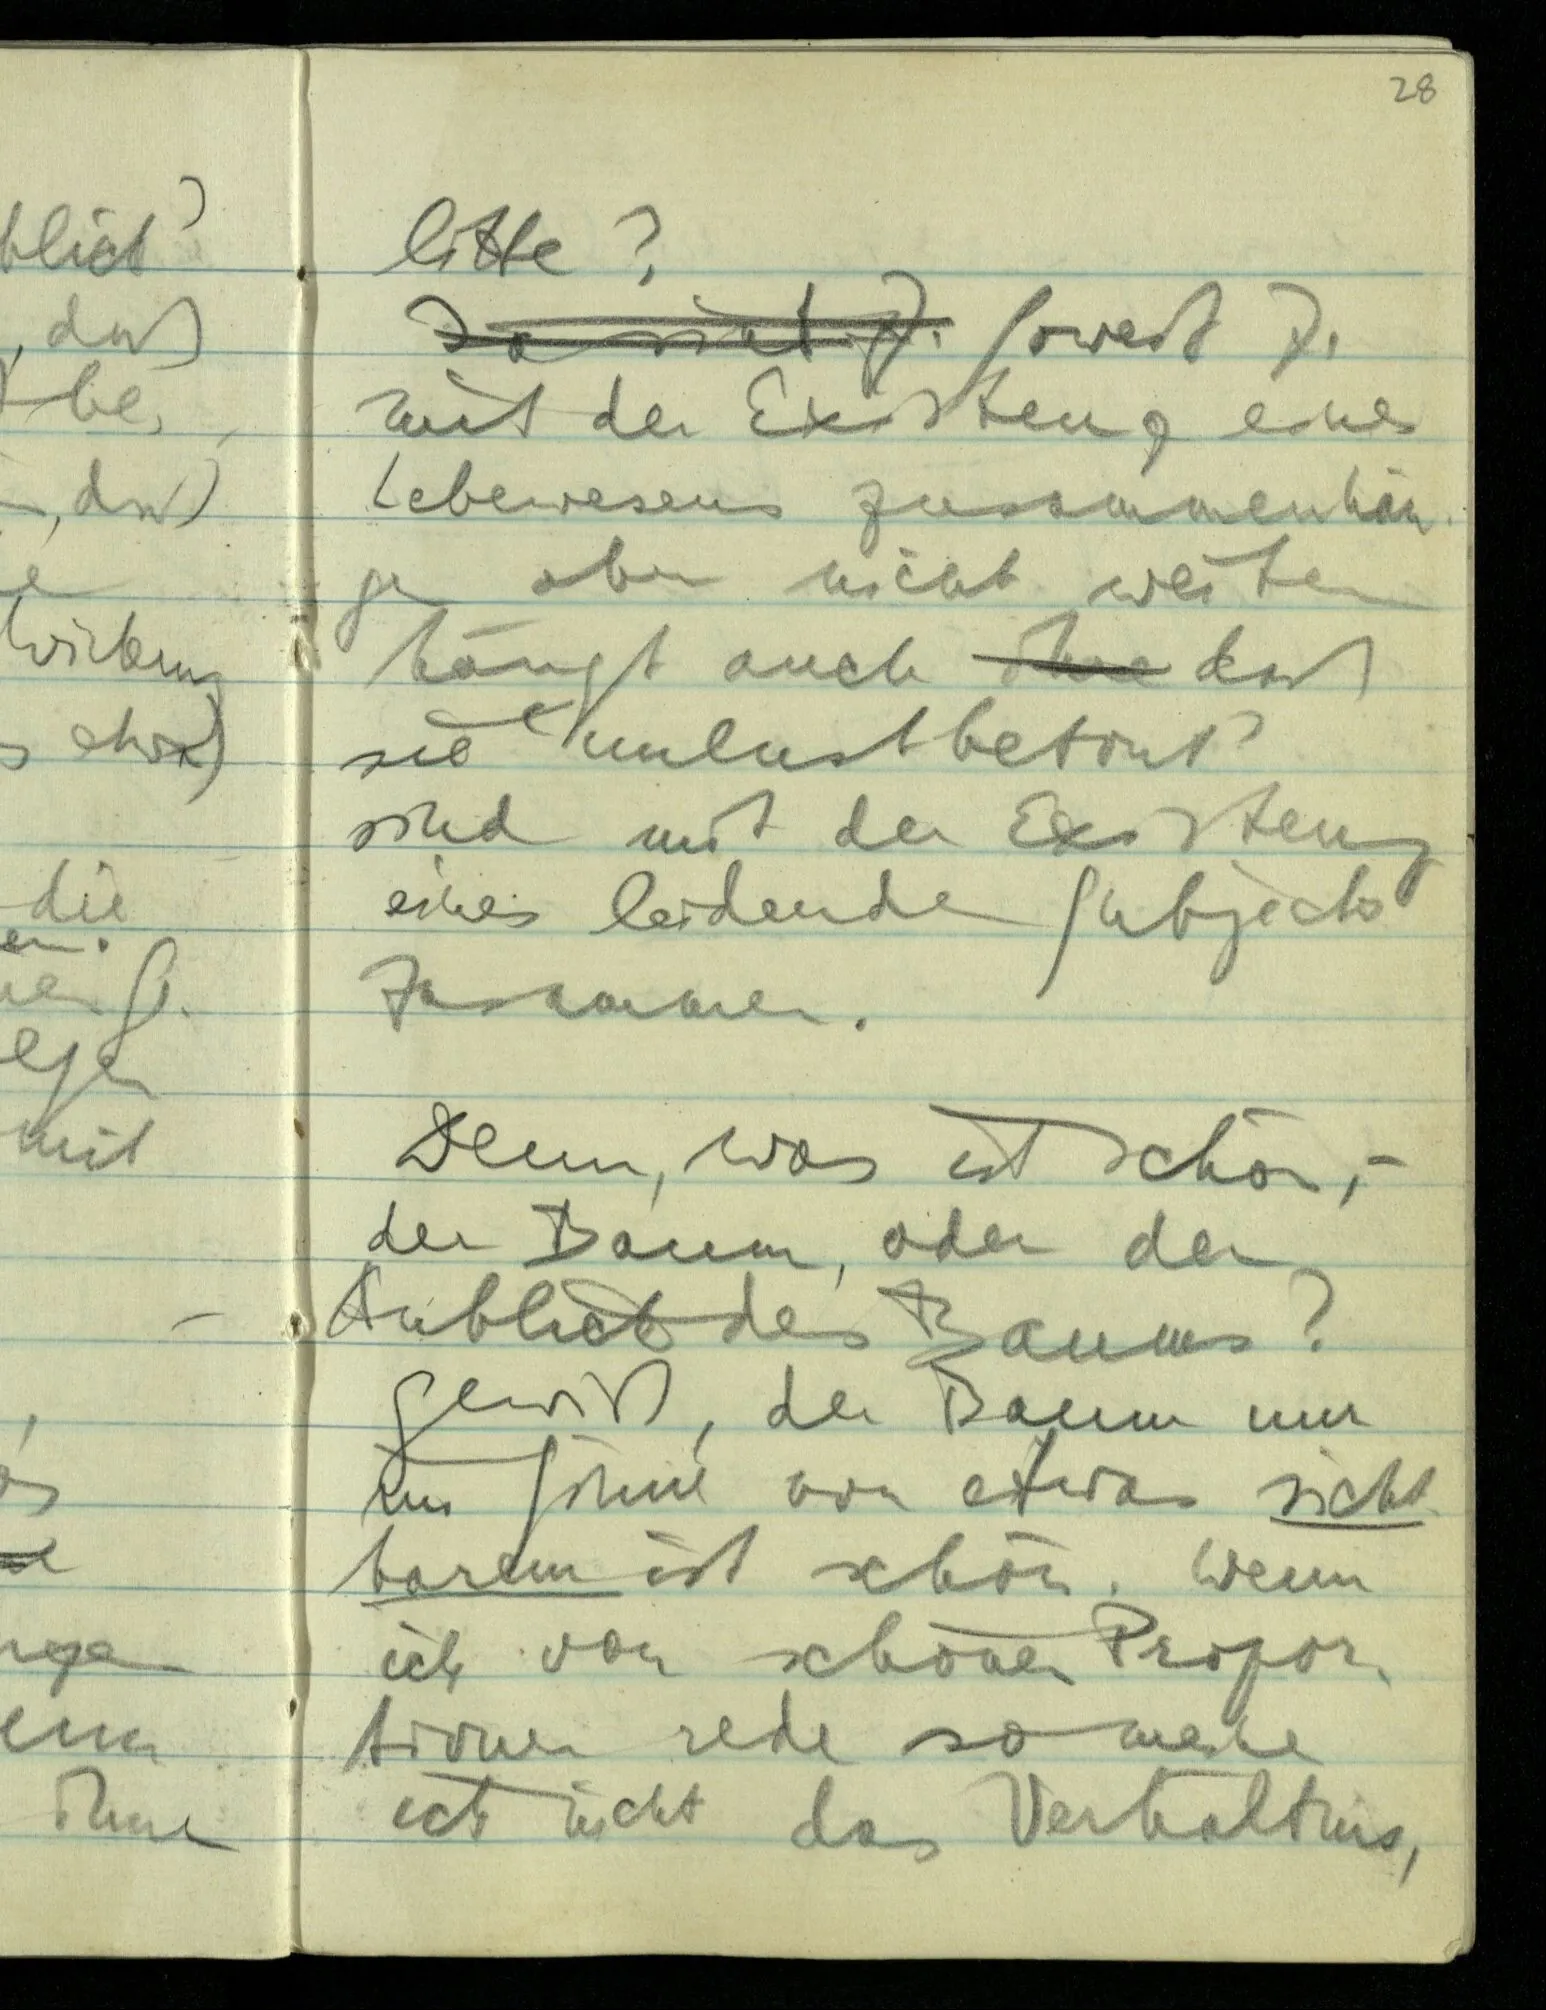 blick?
, daß
be,
, daß
Wirkung
s etwa)
die
en.
egen
mit
ohne
28
litte?
Ja nicht J. Soweit J.
mit der Existenz eines
Lebewesens zusammenhän-
ge aber nicht weiter
hängt auch ohne daß
sie unlustbetont
sind mit der Existenz
eines leidenden Subjects
zusammen.
Denn, was ist schön, –
der Baum, oder der
Anblick des Baums?
Gewiß, der Baum nur
im Sinne von etwas sicht-
barem ist schön. Wenn
ich von schönen Propor-
tionen rede so meine
ich nicht das Verhältnis,